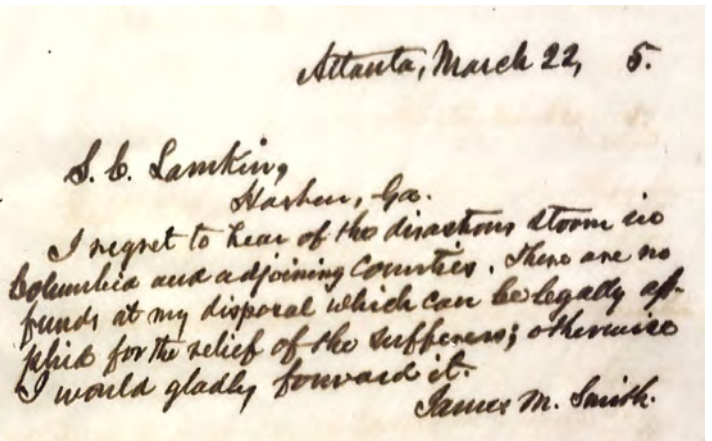 Atlanta, March 22, 5.
S. C. Lamkin,
Harlem, Ga.
I regret to hear of the disastrous storm in
Columbia and adjoining Counties. There are no
funds at my disposal which can be legally ap-
plied for the relief of the sufferers; otherwise
I would gladly forward it.
James M. Smith.